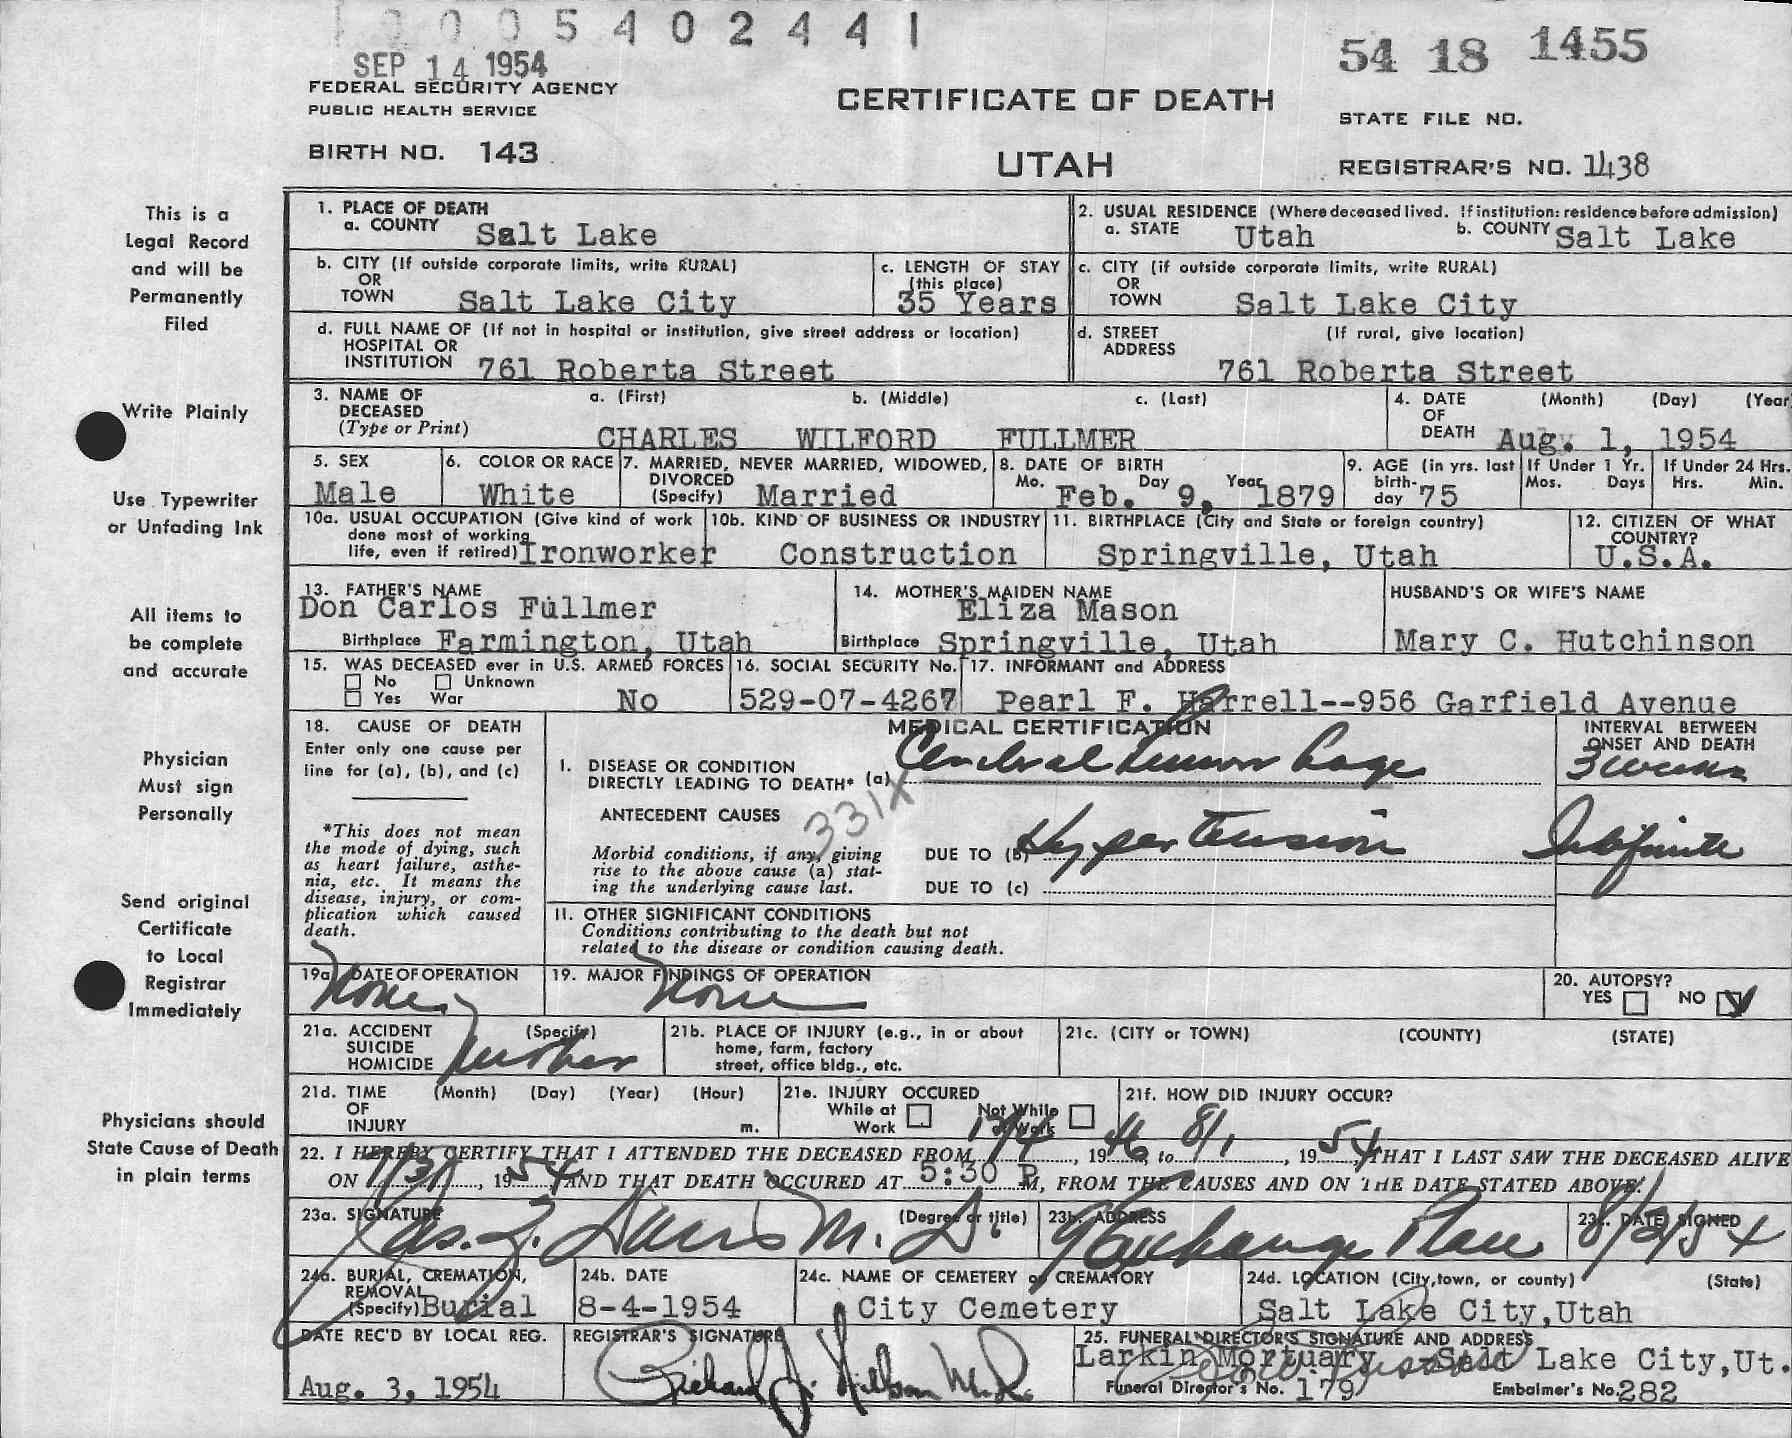 5 4 0 2 4 4 1
SEP 14 1954
54 18 1455
FEDERAL SECURITY AGENCY
PUBLIC HEALTH SERVICE
CERTIFICATE OF DEATH
STATE FILE NO.
BIRTH NO. 143
UTAH
REGISTRAR'S NO. 1438
This is a
Legal Record
and will be
Permanently
Filed
Write Plainly
Use Typewriter
or Unfading Ink
All items to
be complete
and accurate
Physician
Must sign
Personally
Send original
Certificate
to Local
Registrar
Immediately
Physicians should
State Cause of Death
in plain terms
1. PLACE OF DEATH
a. COUNTY Salt Lake
2. USUAL RESIDENCE (Where deceased lived. If institution: residence before admission)
a. STATE Utah b. COUNTY Salt Lake
b. CITY (If outside corporate limits, write RURAL)
OR
TOWN Salt Lake City
c. LENGTH OF STAY
(this place)
35 Years
c. CITY (if outside corporate limits, write RURAL)
OR
TOWN Salt Lake City
d. FULL NAME OF (If not in hospital or institution, give street address or location)
HOSPITAL OR
INSTITUTION 761 Roberta Street
d. STREET (If rural, give location)
ADDRESS
761 Roberta Street
3. NAME OF a. (First) b. (Middle) c. (Last)
DECEASED
(Type or Print) CHARLES WILFORD FULLMER
4. DATE (Month) (Day) (Year
OF
DEATH Aug. 1, 1954
5. SEX
Male
6. COLOR OR RACE
White
7. MARRIED, NEVER MARRIED, WIDOWED,
DIVORCED
(Specify) Married
8. DATE OF BIRTH
Mo. Day Year
Feb. 9, 1879
9. AGE (in yrs. last
birth-
day 75
If Under 1 Yr.
Mos. Days
If Under 24 Hrs.
Hrs. Min.
10a. USUAL OCCUPATION (Give kind of work
done most of working
life, even if retired) Ironworker
10b. KIND OF BUSINESS OR INDUSTRY
Construction
11. BIRTHPLACE (City and State or foreign country)
Springville, Utah
12. CITIZEN OF WHAT
COUNTRY?
U.S.A.
13. FATHER'S NAME
Don Carlos Fullmer
Birthplace Farmington, Utah
14. MOTHER'S MAIDEN NAME
Eliza Mason
Birthplace Springville, Utah
HUSBAND'S OR WIFE'S NAME
Mary C. Hutchinson
15. WAS DECEASED ever in U.S. ARMED FORCES
No Unknown
Yes War No
16. SOCIAL SECURITY No.
529-07-4267
17. INFORMANT and ADDRESS
Pearl F. Harrell--956 Garfield Avenue
18. CAUSE OF DEATH
Enter only one cause per
line for (a), (b), and (c)
*This does not mean
the mode of dying, such
as heart failure, asthe-
nia, etc. It means the
disease, injury, or com-
plication which caused
death.
MEDICAL CERTIFICATION
INTERVAL BETWEEN
ONSET AND DEATH
I. DISEASE OR CONDITION
DIRECTLY LEADING TO DEATH* (a) Cerebral hemorrhage 3 weeks
331X
ANTECEDENT CAUSES
Morbid conditions, if any, giving
rise to the above cause (a) stat-
ing the underlying cause last.
DUE TO (b) Hypertension Indefinite
DUE TO (c)
II. OTHER SIGNIFICANT CONDITIONS
Conditions contributing to the death but not
related to the disease or condition causing death.
19a. DATE OF OPERATION
None
19. MAJOR FINDINGS OF OPERATION
None
20. AUTOPSY?
YES NO
21a. ACCIDENT (Specify)
SUICIDE
HOMICIDE
21b. PLACE OF INJURY (e.g., in or about
home, farm, factory
street, office bldg., etc.
21c. (CITY or TOWN) (COUNTY) (STATE)
21d. TIME (Month) (Day) (Year) (Hour)
OF
INJURY m.
21e. INJURY OCCURED
While at Work
Not While at Work
21f. HOW DID INJURY OCCUR?
22. I HEREBY CERTIFY THAT I ATTENDED THE DECEASED FROM , 1946, to 8/1, 1954, THAT I LAST SAW THE DECEASED ALIVE
ON 7/31, 1954 AND THAT DEATH OCCURED AT 5:30 P M, FROM THE CAUSES AND ON THE DATE STATED ABOVE.
23a. SIGNATURE (Degree or title)
Jas. Z. Davis M. D.
23b. ADDRESS
9 Exchange Place
23c. DATE SIGNED
8/2/54
24a. BURIAL, CREMATION,
REMOVAL
(Specify) Burial
24b. DATE
8-4-1954
24c. NAME OF CEMETERY or CREMATORY
City Cemetery
24d. LOCATION (City, town, or county) (State)
Salt Lake City, Utah
DATE REC'D BY LOCAL REG.
Aug. 3, 1954
REGISTRAR'S SIGNATURE
Richard
25. FUNERAL DIRECTOR'S SIGNATURE AND ADDRESS
Larkin Mortuary Salt Lake City, Ut.
Funeral Director's No. 179 Embalmer's No. 282